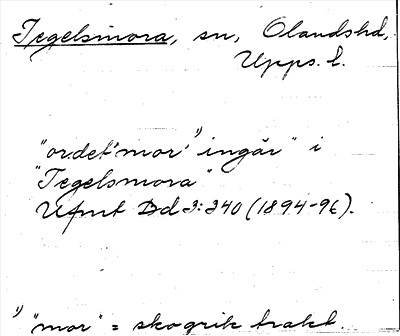 Tegelsmora, sn, Olandshd,
Upps. l.
"ordet 'mor' 1) ingår" i
"Tegelsmora"
Ufmt Bd 3:240 (1894-96).
1) "mor" = skogrik trakt.